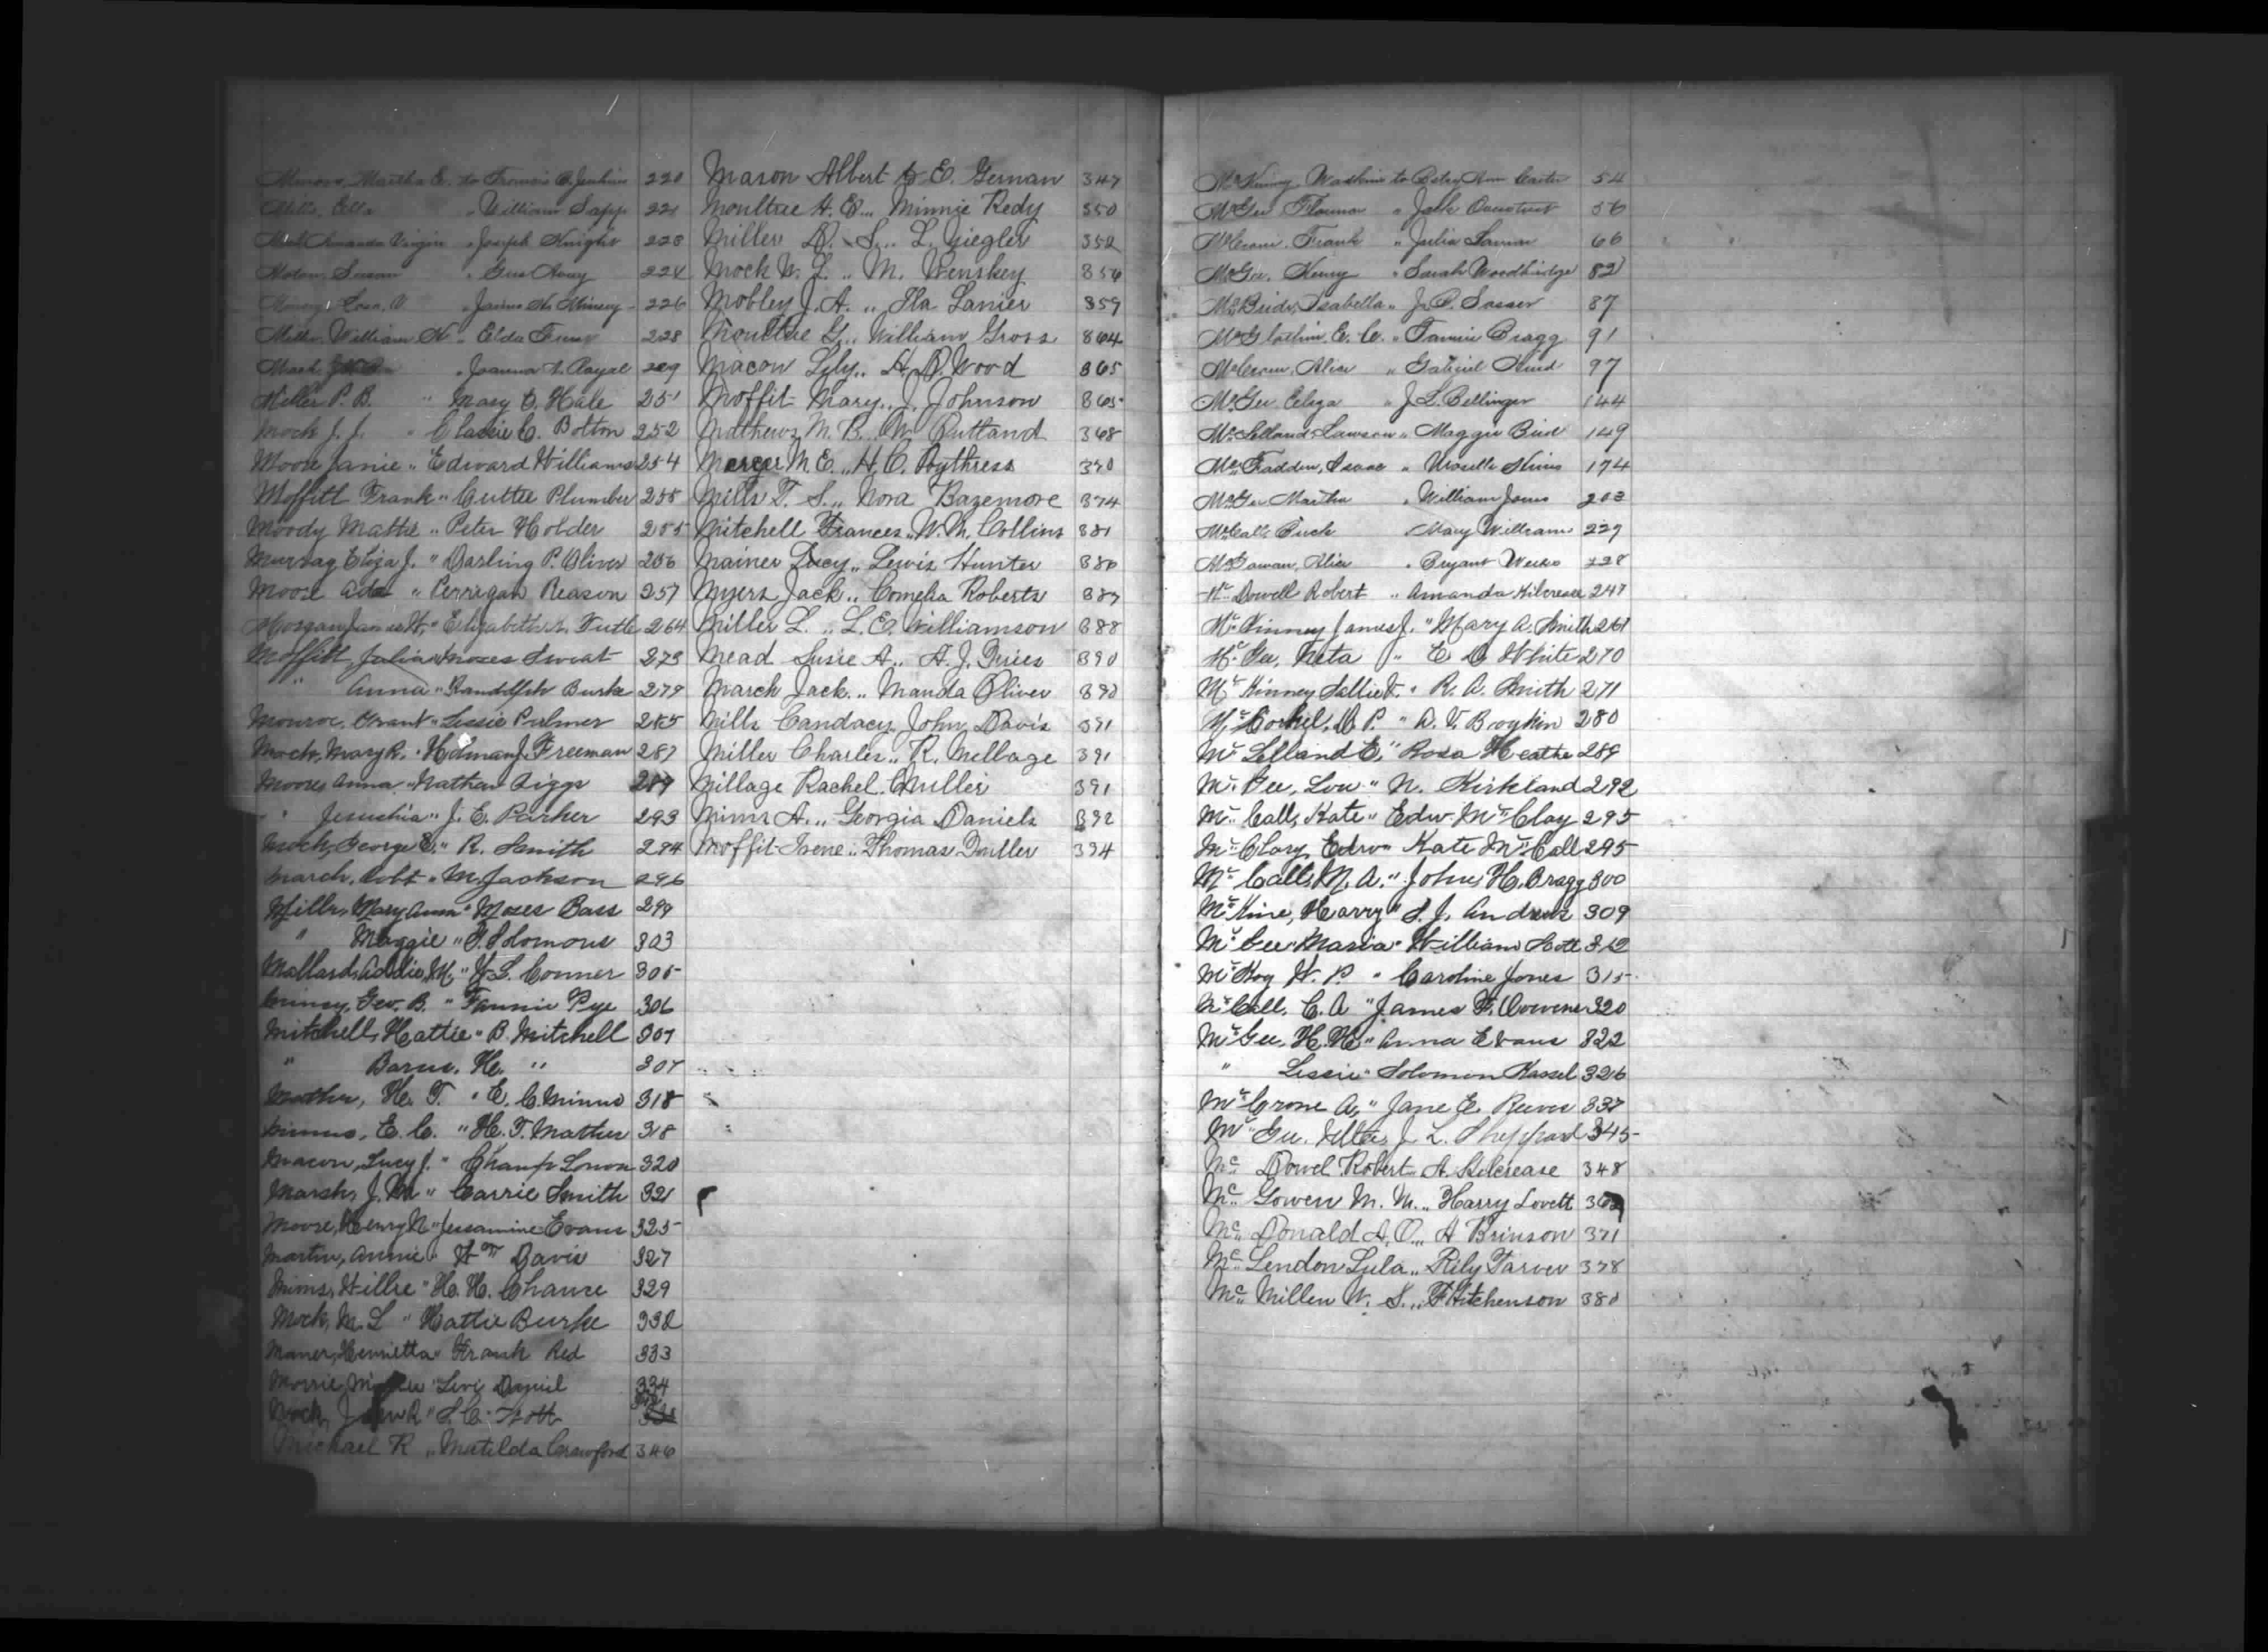 Martha E. to Francis B. Jenkins 220
Mills, Ella " William Sapp 221
Amanda Virgin " Joseph Knight 223
Moton, Susan " Gus 224
Mincey, " James H. Mincey 226
Miller William H " Elda 228
Mock, " Joanna L. Royal 229
Miller P. B. " Mary E. Hale 251
Mock J. J. " Classie C. Bolton 252
Moore Janie " Edward Williams 254
Moffitt Frank " Cuttie Plumber 255
Moody Mattie " Peter Holder 255
Murray Eliza J. " Darling P. Oliver 256
Moore Ada " Perrigan Reason 257
Morgan James H. " Elizabeth A. Tuttle 264
Moffitt, Julia " Moses Sweat 273
" Anna " Randolph Burke 279
Monroe, Grant " Lessie Palmer 285
Mock, Mary R. " Holman J. Freeman 287
Moore, Anna " Nathan Riggs 289
" " J. E. Parker 293
Mock, George E. " R. Smith 294
March, Robt " M. Jackson 296
Mills, Mary Ann " Moses Bass 299
" Maggie " F. Solomons 303
Mallard, Addie M. " W. L. Conner 305
Mincy, Geo. B. " Fannie Pye 306
Mitchell, Hattie " B. Mitchell 307
" H. " 307
Mather, H. T. " E. C. Minus 318
Minus, E. C. " H. T. Mather 318
Macon, Lucy J. " Champ 320
Marsh, J. M " Carrie Smith 321
Moore, Henry N " Jessamine Evans 325
Martin, Annie " W T Davis 327
Mims, Willie " H. H. Chance 329
Mock, M. L " Hattie Burke 332
Maner, Henrietta " Frank Red 333
Morris, " Levi Daniel 334
Mock, John R " S. C. Scott
Michael R " Matilda Crawford 346
Mason Albert to E. German 347
Moultrie H. E. " Minnie Redy 350
Miller D. S. " L. Ziegler 352
Mock W. J. " M. Wenskey 356
Mobley J. A. " Ila Lanier 359
Moultrie G. " William Gross 364
Macon Lyly " H. D. Wood 365
Moffit Mary " J. Johnson 365
Mathews M. B. " M. Rutland 368
Mercer M. E. " H. C. Bythress 370
Mills T. S. " Nora Bazemore 374
Mitchell Frances " W. M. Collins 381
Mainer Lucy " Lewis Hunter 380
Myers Jack " Cornelia Roberts 387
Miller L. " L. E. Williamson 388
Mead Susie A. " A. J. 390
March Jack " Manda Oliver 390
Mills Candacy " John Davis 391
Miller Charles " R. Millage 391
Millage Rachel C. Miller 391
Mims A. " Georgia Daniels 392
Moffit Irene " Thomas 394
McKinney, Watkins to Betsy Ann Carter 54
McGee " Jack Overstreet 56
Frank " Julia 66
McGee, Henry " Sarah Woodbridge 82
McBride, Isabella " J. P. Sasser 87
McGlothin, E. C. " Fannie Bragg 91
Alice " Gabriel 97
McGee, Eliza " J. L. Bellinger 144
McLelland, Lawson " Maggie Bird 149
McFadden, Isaac " 174
McGee Martha " William Jones 203
McCall, Buck " Mary Williams 229
McGowan, Alice " Bryant Weeks 228
McDowell Robert " Amanda Kilcrease 247
McKinney James J. " Mary A. Smith 261
McGee, Neta " E. D. White 270
McKinney Sallie V. " R. A. Smith 271
McCorkel, D P. " A. V. Boykin 280
McLelland E. " Rosa Heathe 289
McGee, Lou " N. Kirkland 292
McCall, Kate " Edw. McClay 295
McClay, Edw " Kate McCall 295
McCall, M. A. " John H. Bragg 300
McKine, Harry " S. J. Andrews 309
McGee Maria " William Scott 312
McKoy W. P. " Caroline Jones 315
McCall, C. A " James F. 320
McGee, H. H " Anna Evans 322
" Lessie " Solomon Kassel 326
McCrone A. " Jane E. Reeves 337
McGee, J. L. Sheppard 345
McDowel Robert " A. Kilcrease 348
McGowen M. M. " Harry Lovett
McDonald A. O. " H Brinson 371
McLendon Lula " Rily Tarver 378
McMillen W. S. " F Hitchenson 380